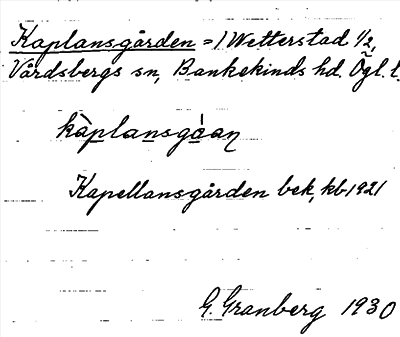 Kaplansgården = /Wetterstad 1/2,
Vårdsbergs sn, Bankekinds hd. Ögl. l.
kàplansgáan
Kapellansgården bek, kb 1921
G. Granberg 1930